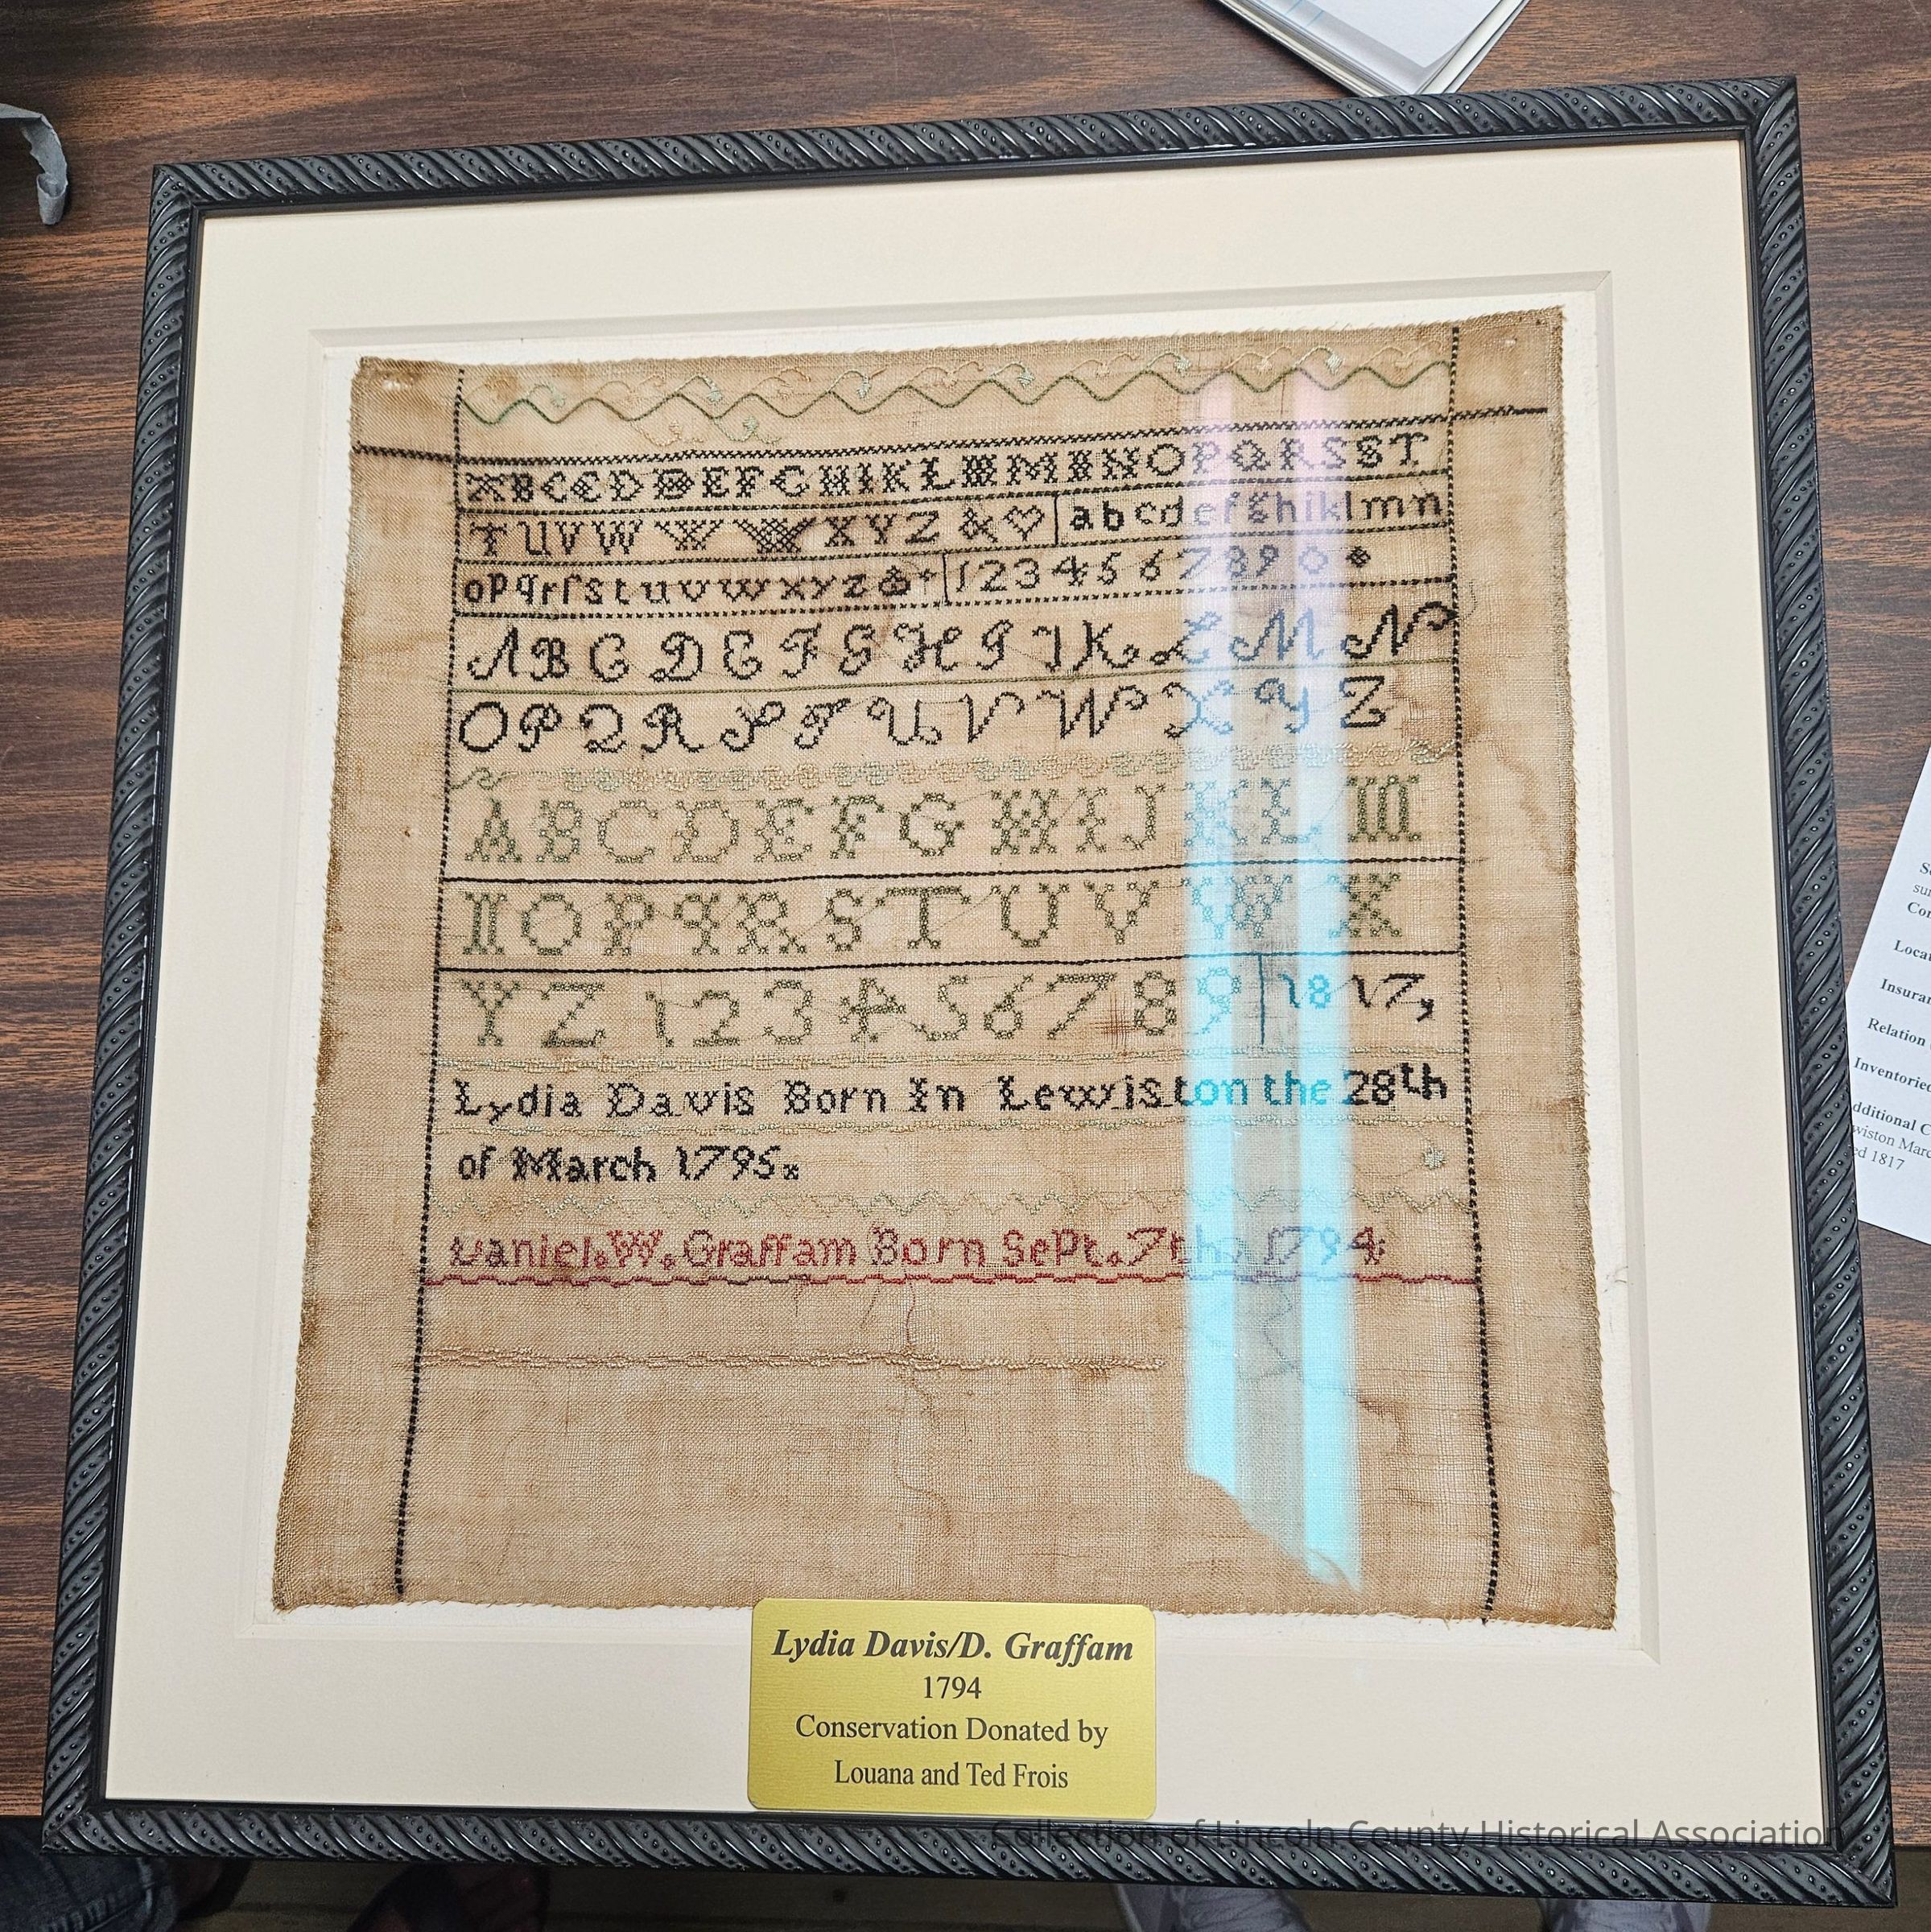 ABCDEFGHIKLMNOPQRSST
TUVWWWXYZ&♡ abcdefghiklmn
opqrſstuvwxyz& 1234567890
ABCDEFGHIJKLMN
OPQRSTUVWXYZ
ABCDEFGHIJKLM
NOPqRSTUVWX
YZ 123456789 1817,
Lydia Davis Born In Lewiston the 28th
of March 1795
Daniel.W.Graffam Born SePt.7th 1794
Lydia Davis/D. Graffam
1794
Conservation Donated by
Louana and Ted Frois
Collection of Lincoln County Historical Association
Locat
Insuran
Relation
Inventoried
dditional C
wiston Marc
ed 1817